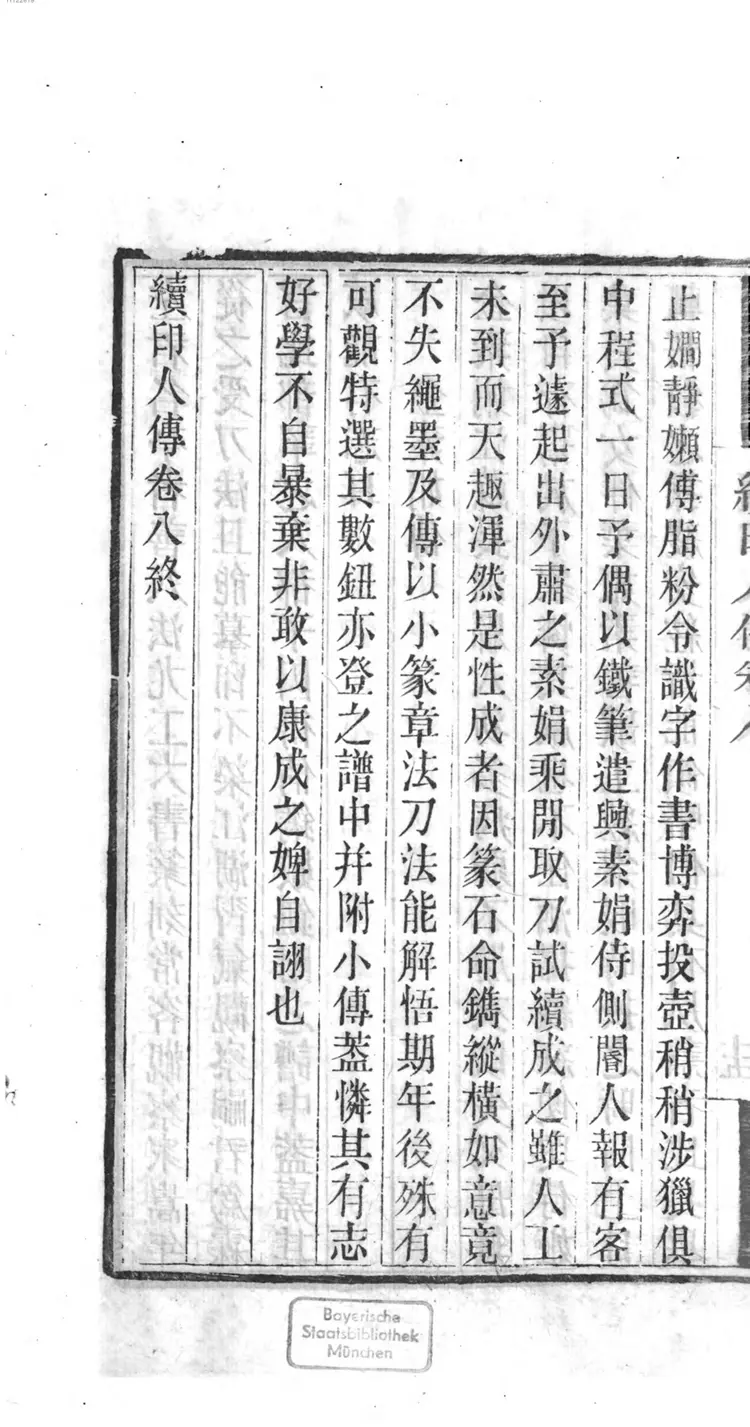 止嫺靜嬾傅脂粉令識字作書博弈投壺稍稍涉獵俱
中程式一日予偶以鐵筆遣興素娟侍側閽人報有客
至予遽起出外肅之素娟乘閒取刀試續成之雖人工
未到而天趣渾然是性成者因篆石命鐫縱橫如意竟
不失繩墨及傳以小篆章法刀法能解悟期年後殊有
可觀特選其數鈕亦登之譜中并附小傳葢憐其有志
好學不自暴棄非敢以康成之婢自詡也
續印人傳卷八終
Bayerische
Staatsbibliothek
München